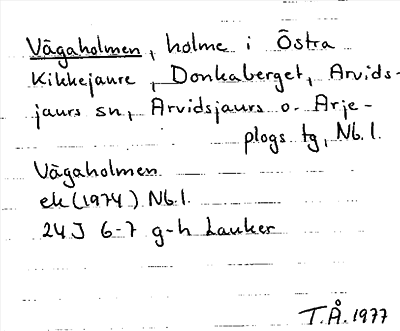 Vågaholmen, holme i Östra
Kikkejaure, Donkaberget, Arvids-
jaurs sn, Arvidsjaurs o. Arje-
plogs tg, Nb.l.
Vågaholmen
ek (1974) Nb.l.
24J 6-7 g-h Lauker
T.Å. 1977